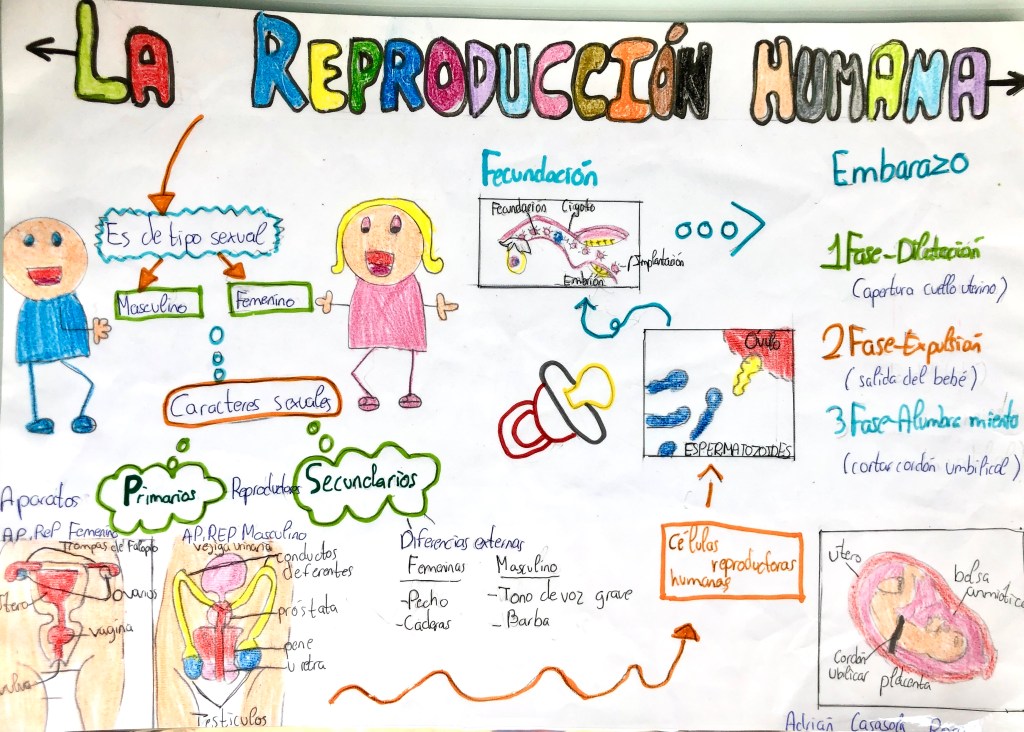 LA REPRODUCCIÓN HUMANA
Es de tipo sexual
Masculino
Femenino
Caracteres sexuales
Primarios
Secundarios
Aparatos Reproductores
AP. Rep Femenino
Trompas de Falopio
Ovarios
Útero
vagina
vulva
AP. REP Masculino
vejiga urinaria
conductos
deferentes
próstata
pene
uretra
Testículos
Diferencias externas
Femeninas
-Pecho
-Caderas
Masculino
-Tono de voz grave
-Barba
Células
reproductoras
humanas
Óvulo
ESPERMATOZOIDES
Fecundación
Fecundación
Cigoto
Implantación
Embrión
Embarazo
1 Fase-Dilatación
(apertura cuello uterino)
2 Fase-Expulsión
(salida del bebé)
3 Fase-Alumbramiento
(cortar cordón umbilical)
útero
bolsa
amniótica
Cordón
ubilicar
placenta
Adrián